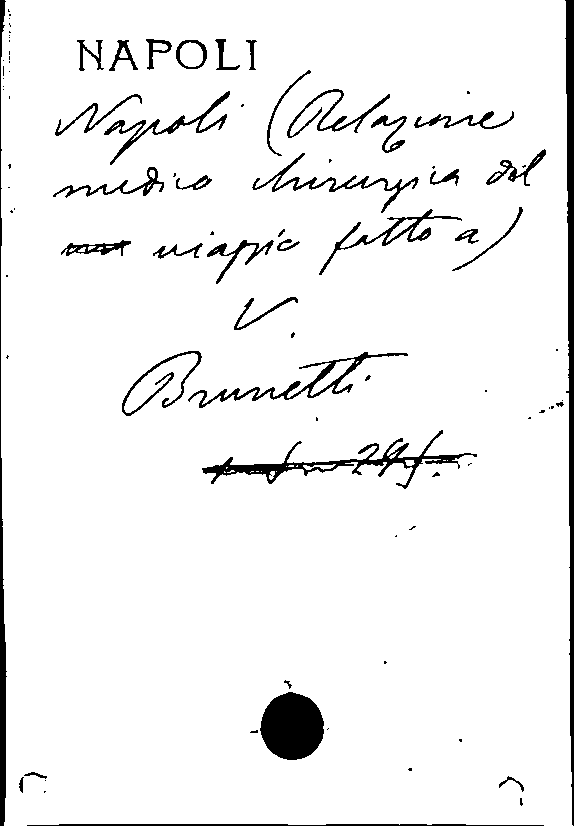 NAPOLI
Napoli (Relazione
medico chirurgica del
viaggio fatto a)
V.
Brunetti